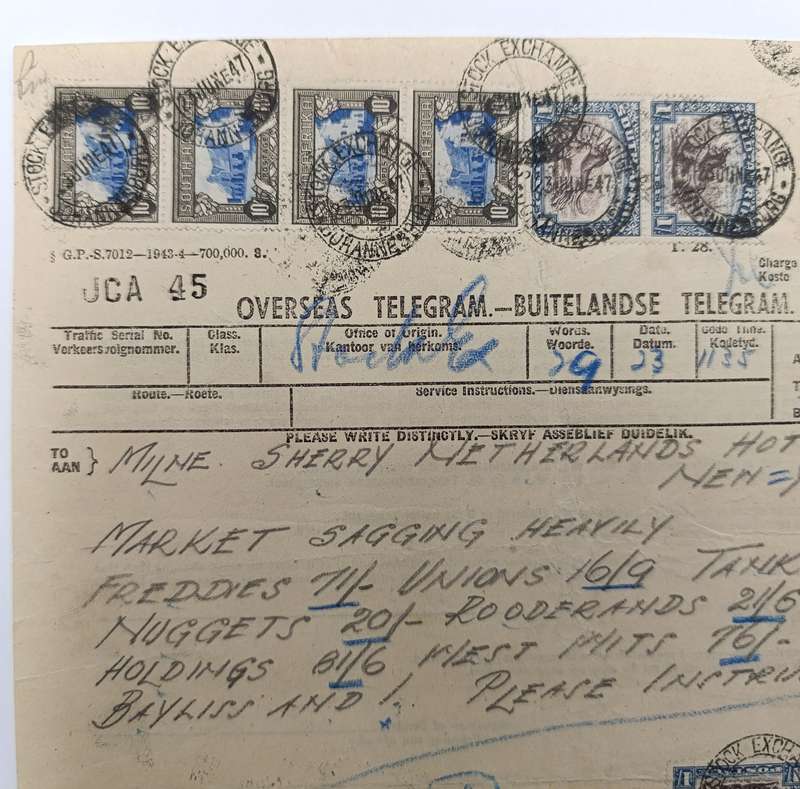 STOCK EXCHANGE 23 JUNE 47 JOHANNESBURG
SOUTH AFRICA 10
§ G.P.-S.7012—1943-4—700,000. S.
P. 28.
JCA 45
Charge
Koste
OVERSEAS TELEGRAM.—BUITELANDSE TELEGRAM.
Traffic Serial No. Class. Office of Origin. Words. Date. Code Time.
Verkeersvolgnommer. Klas. Kantoor van herkoms. Woorde. Datum. Kodetyd.
29 23 1135
Route.—Roete. Service Instructions.—Diensaanwysings.
PLEASE WRITE DISTINCTLY.—SKRYF ASSEBLIEF DUIDELIK.
TO
AAN } MILNE SHERRY NETHERLANDS HOT
NEW = Y
MARKET SAGGING HEAVILY
FREDDIES 71/- UNIONS 16/9 TANK
NUGGETS 20/- ROODERANDS 21/6
HOLDINGS 81/6 WEST WITS 76/-
BAYLISS AND I. PLEASE INSTRU
STOCK EXCH